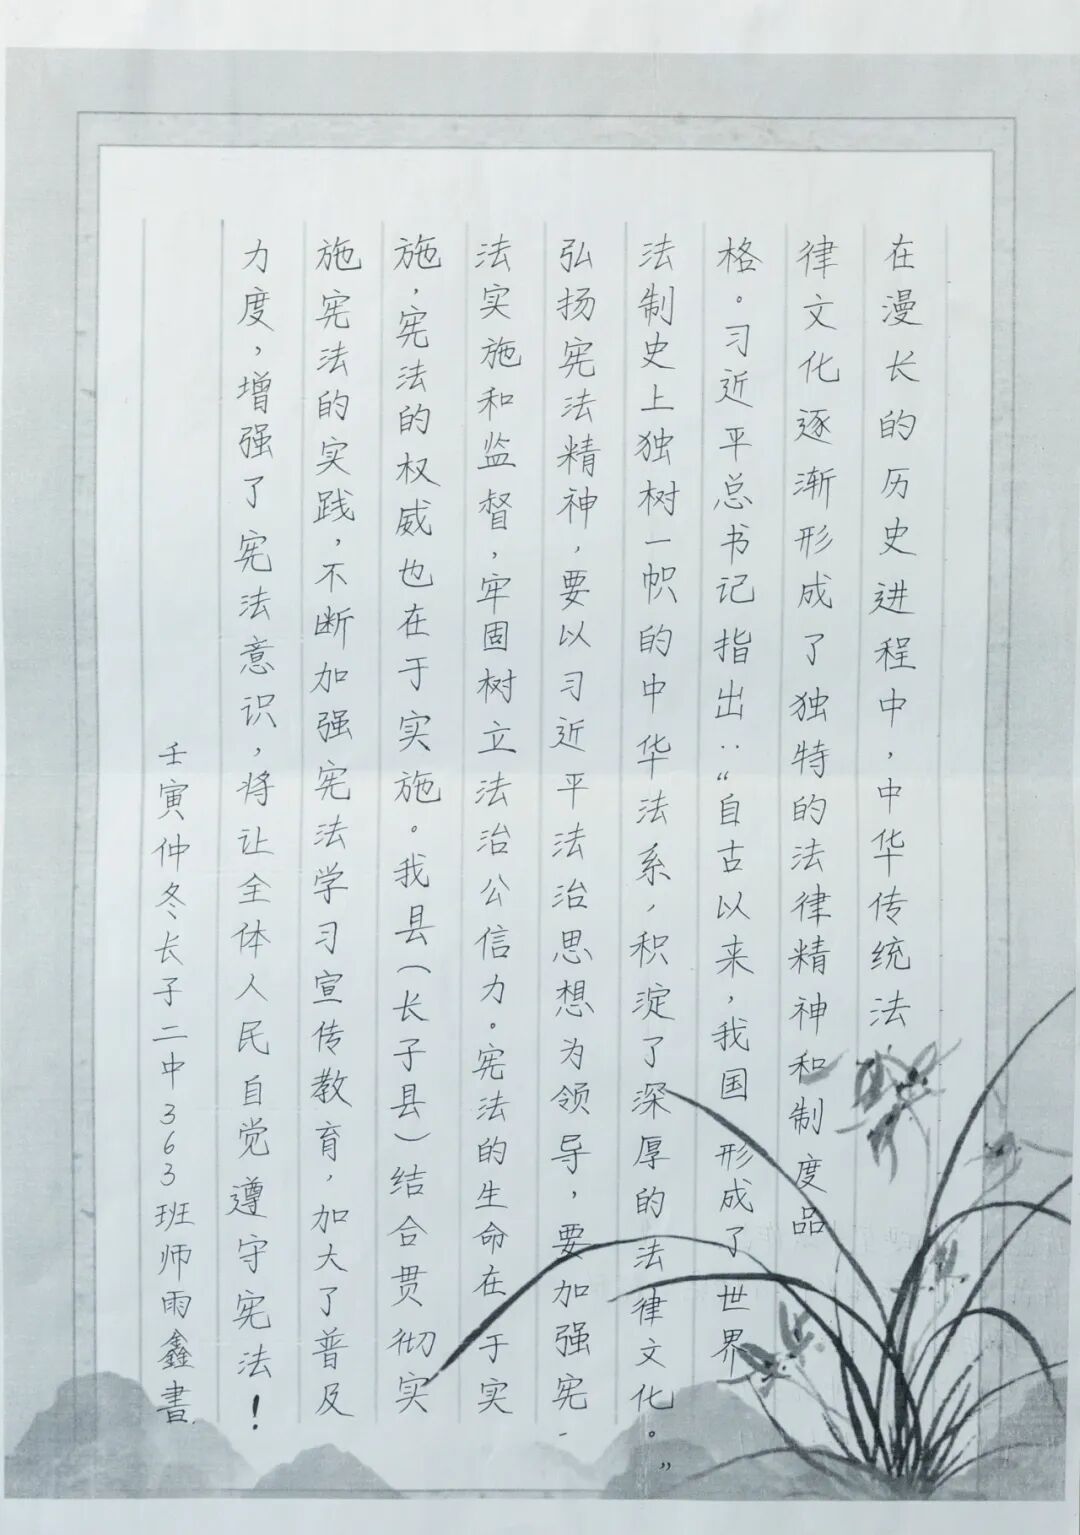 在漫长的历史进程中，中华传统法
律文化逐渐形成了独特的法律精神和制度品
格。习近平总书记指出：“自古以来，我国形成了世界
法制史上独树一帜的中华法系，积淀了深厚的法律文化。”
弘扬宪法精神，要以习近平法治思想为领导，要加强宪
法实施和监督，牢固树立法治公信力。宪法的生命在于实
施，宪法的权威也在于实施。我县（长子县）结合贯彻实
施宪法的实践，不断加强宪法学习宣传教育，加大了普及
力度，增强了宪法意识，将让全体人民自觉遵守宪法！
壬寅仲冬长子二中363班师雨鑫書